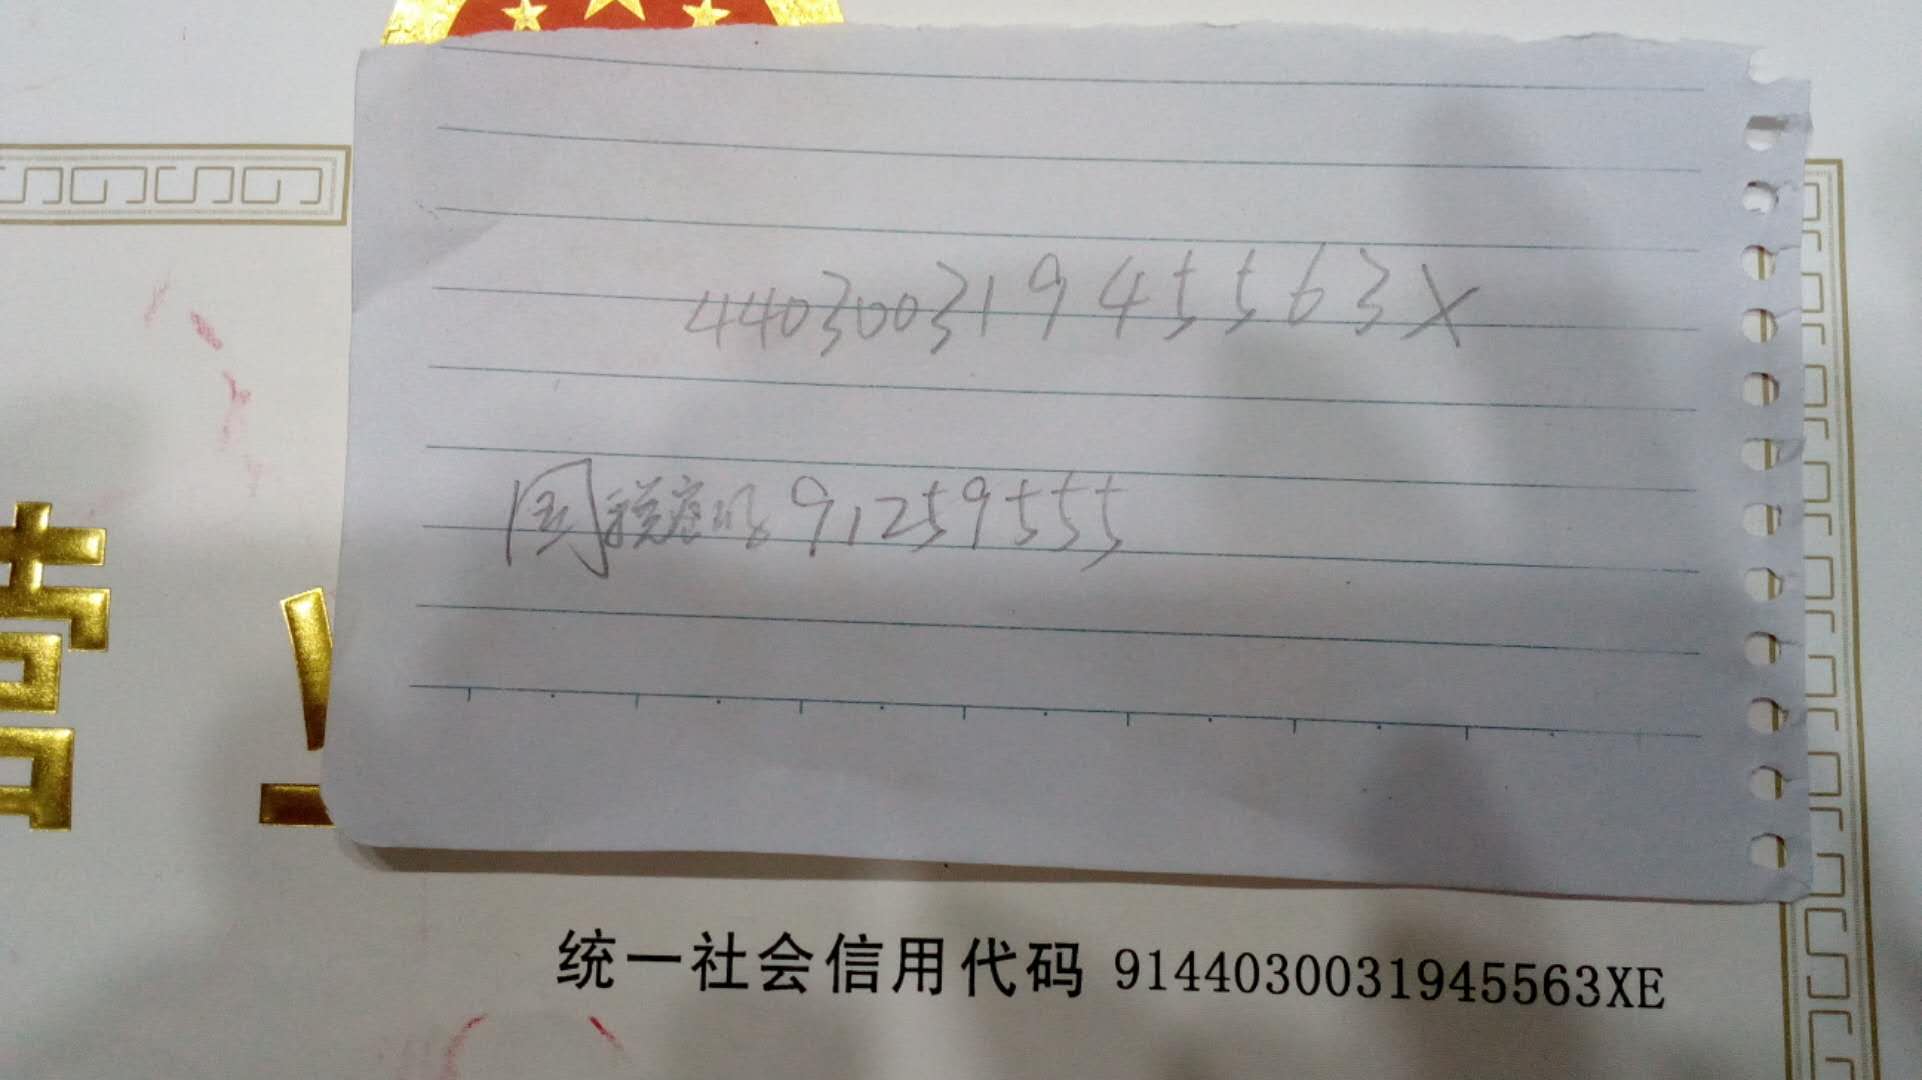 4403003194 5563X
国税 91259555
统一社会信用代码 9144030031945563XE